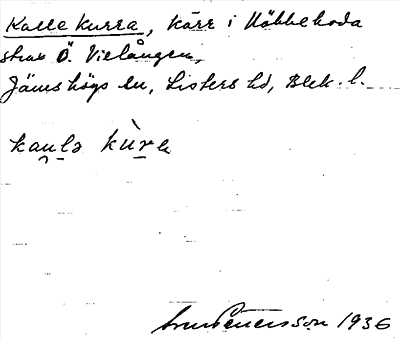 Kalle Kurra, Kärr i Kåbbeboda
strax Ö. Vielången,
Jämshögs sn, Listers hd, Blek. l.
kaulə kùra
Petersson 1936